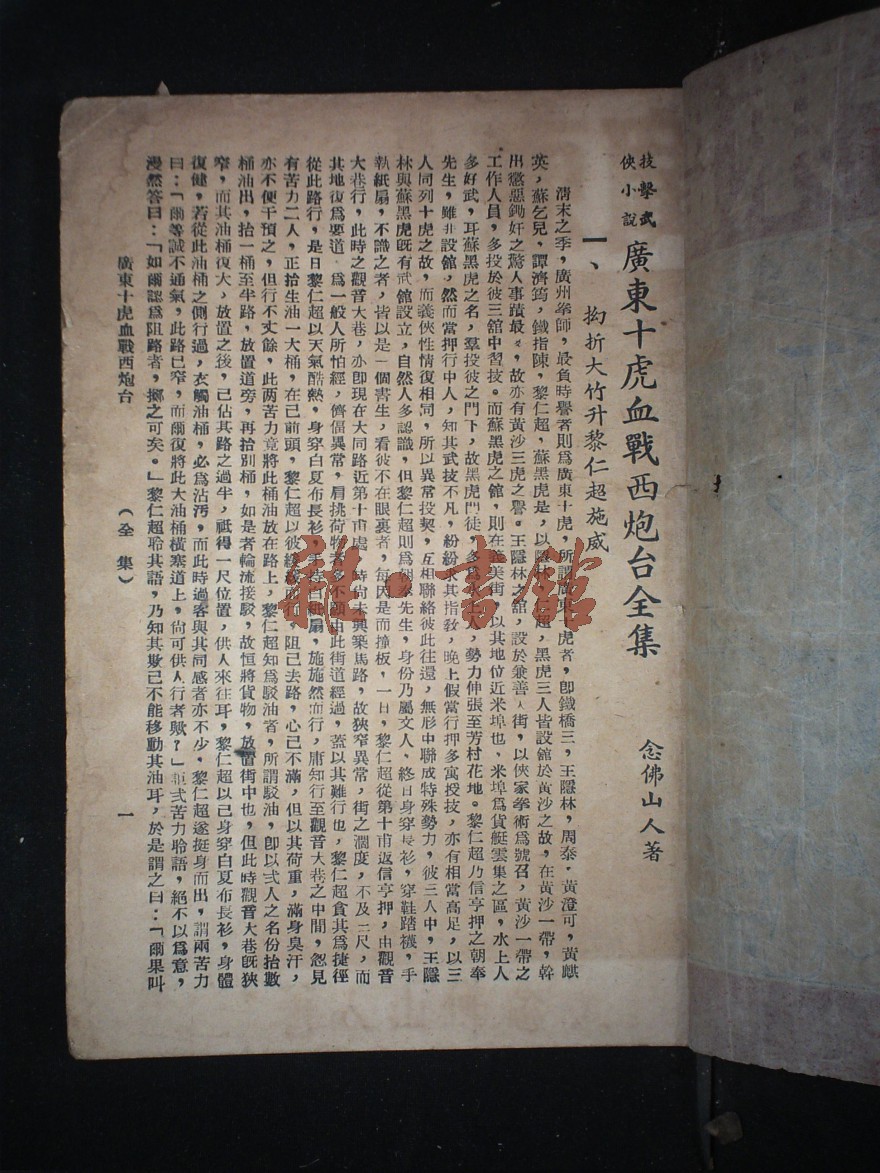 技擊武
俠小說
廣東十虎血戰西炮台全集
念佛山人著
一、拗折大竹升黎仁超施威
清末之季，廣州拳師，最負時譽者則為廣東十虎，所謂廣東十虎者，卽鐵橋三，王隱林，周泰，黃澄可，黃麒
英，蘇乞兒，譚濟筠，鐵指陳，黎仁超，蘇黑虎是，以隱林，仁超，黑虎三人皆設館於黃沙之故，在黃沙一帶，幹
出懲惡鋤奸之驚人事蹟最，故亦有黃沙三虎之譽。王隱林之館，設於兼善大街，以俠家拳術為號召，黃沙一帶之
工作人員，多投於彼三舘中習技。而蘇黑虎之舘，則在善美街，以其地位近米埠也，米埠為貨艇雲集之區，水上人
多好武，耳蘇黑虎之名，羣投彼之門下，故黑虎門徒，多為水上人，勢力伸張至芳村花地。黎仁超乃信亨押之朝奉
先生，雖非設館，然而當押行中人，知其武技不凡，紛紛求其指敎，晚上假當行押多寓授技，亦有相當高足，以三
人同列十虎之故，而義俠性情復相同，所以異常投契，互相聯絡彼此往還，無形中聯成特殊勢力，彼三人中，王隱
林與蘇黑虎旣有武館設立，自然人多認識，但黎仁超則為朝奉先生，身份乃屬文人，終日身穿長衫，穿鞋踏襪，手
執紙扇，不識之者，皆以是一個書生，看彼不在眼裏者，每因是而撞板，一日，黎仁超從第十甫返信亨押，由觀音
大巷行，此時之觀音大巷，亦卽現在大同路近第十甫處，時尚未興築馬路，故狹窄異常，街之濶度，不及三尺，而
其地復為要道，為一般人所怕經，儕偪異常，肩挑荷物者多不願由此街道經過，蓋以其難行也，黎仁超貪其為捷徑
從此路行，是日黎仁超以天氣酷熱，身穿白夏布長衫，手持白紙扇，施施然而行，庸知行至觀音大巷之中間，忽見
有苦力二人，正抬生油一大桶，在己前頭，黎仁超以彼緩緩而行，阻己去路，心已不滿，但以其荷重，滿身臭汗，
亦不便干預之，但行不丈餘，此两苦力竟將此桶油放在路上，黎仁超知為駁油者，所謂駁油，卽以弍人之名份抬數
桶油出，抬一桶至半路，放置道旁，再抬別桶，如是者輪流接駁，故恒將貨物，放置街中也，但此時觀音大巷旣狹
窄，而其油桶復大，放置之後，已佔其路之過半，祗得一尺位置，供人來往耳，黎仁超以己身穿白夏布長衫，身體
復健，若從此油桶之側行過，衣觸油桶，必為沾汚，而此時過客與其同感者亦不少，黎仁超遂挺身而出，謂兩苦力
曰：「爾等誠不通氣，此路已窄，而爾復將此大油桶橫塞道上，尙可供人行者歟？」詎弍苦力聆語，絕不以為意，
漫然答曰：「如爾認為阻路者，擲之可矣。」黎仁超聆其語，乃知其欺己不能移動其油耳，於是謂之曰：「爾果叫
廣東十虎血戰西炮台（全集）一
雅·書館